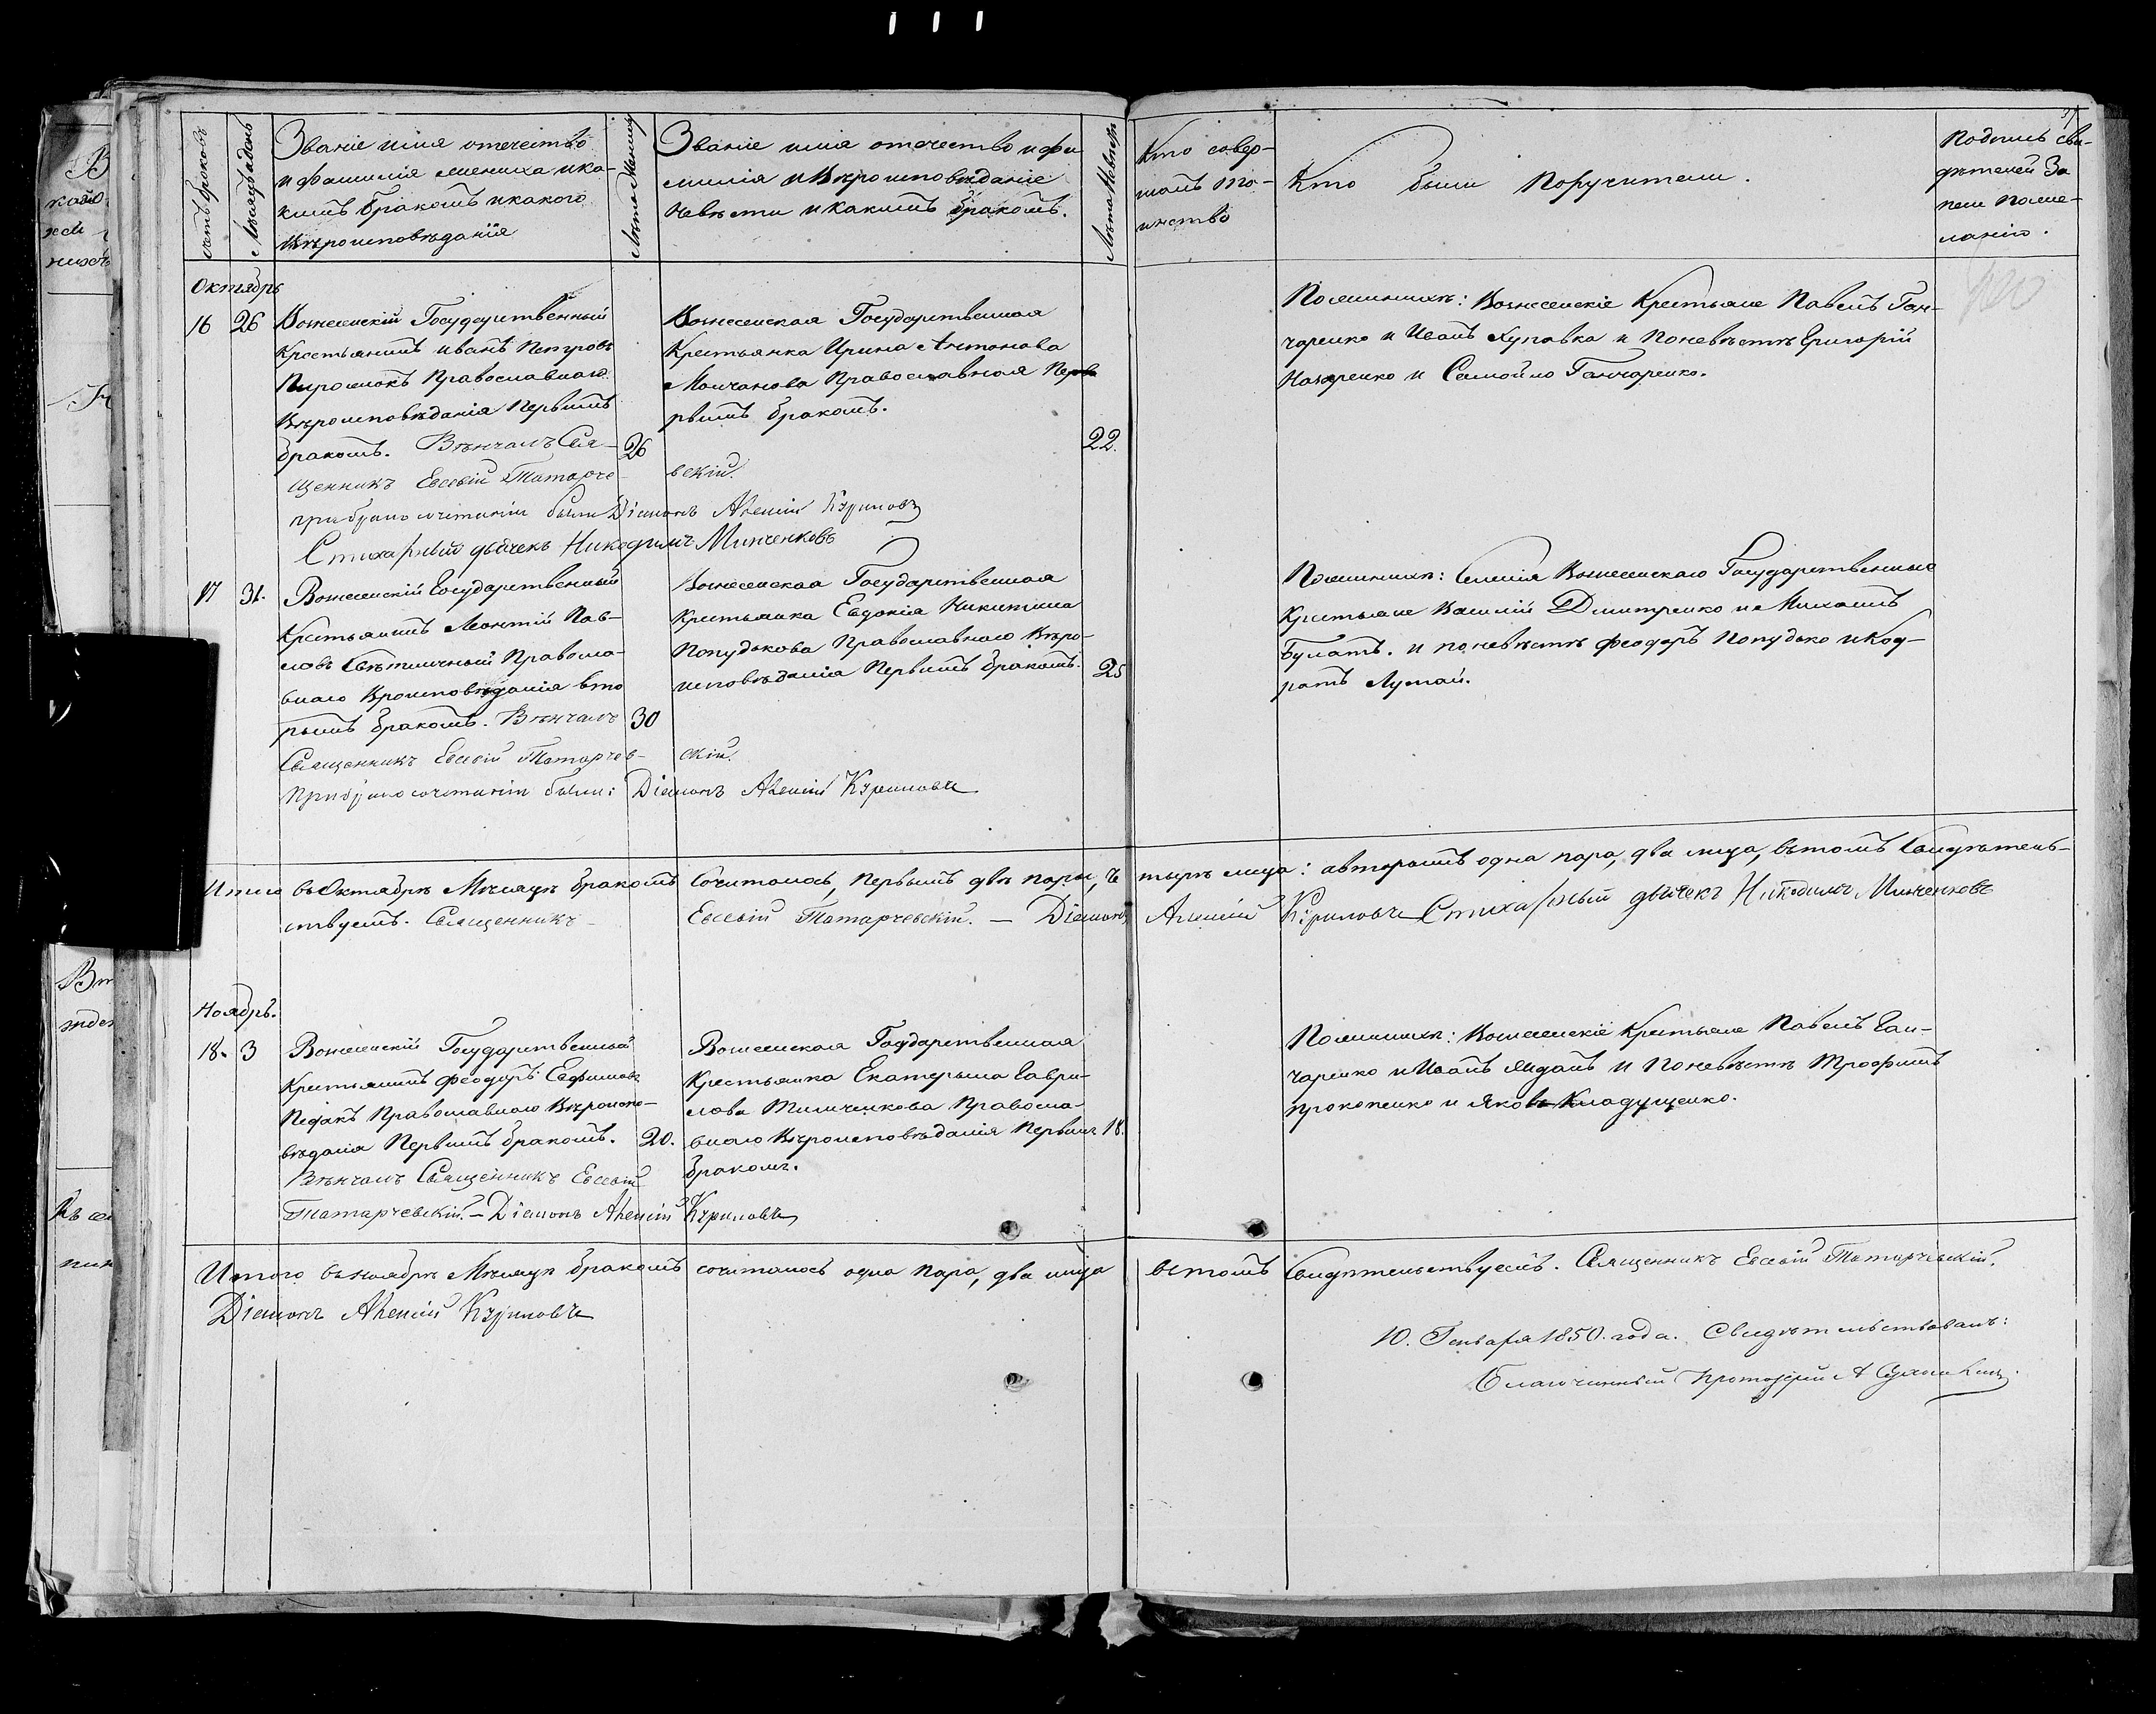 счетъ браковъ
Мѣсяцъ и день
Званіе имя отечество
и фамилія жениха и ка-
кимъ бракомъ и какого
Вѣроисповѣданія
Лѣта Жениха
Званіе имя отечество и фа
милія и Вѣроисповѣданіе
Невѣсты и какимъ бракомъ.
Лѣта Невѣсты
Кто совер-
шалъ та-
инство
Кто были Поручители.
Подпись сви-
дѣтелей За
писи по же-
ланію.
Октябрь
16 26
Вознесенскій Государственный
Крестьянинъ Иванъ Петровъ
Пирожокъ Православнаго
Вѣроисповѣданія Первымъ
бракомъ. Вѣнчалъ Свя-
щенникъ Евсевій Татарче-
вскій.
при бракосочетаніи были Діаконъ Авксентій Куриловъ
Стихарный дьячекъ Никодимъ Минченковъ
26
Вознесенская Государственная
Крестьянка Ирина Антонова
Молчанова Православная Перв
рвымъ бракомъ.
22.
По женихѣ: Вознесенскіе Крестьяне Павелъ Ган-
чаренко и Иванъ Хуповка и По невѣстѣ Григорій
Назаренко и Самойло Ганчаренко.
17 31.
Вознесенскій Государственный
Крестьянинъ Леонтій Пав-
ловъ Свѣтличный Правосла-
внаго Вроисповѣданія вто
рымъ бракомъ. Вѣнчалъ
Священникъ Евсевій Татарчев-
скій.
При бракосочетаніи были: Діаконъ Авксентій Куриловъ
30
Вознесенская Государственная
Крестьянка Евдокія Никитина
Попудькова Православнаго Вѣро-
исповѣданія Первымъ бракомъ.
25
По женихѣ: Селенія Вознесенскаго Государственные
Крестьяне Василій Дмитренко и Михаилъ
Булатъ. и по невѣстѣ Феодоръ Попудько и Код-
ратъ Лунай.
Итого въ Октябрѣ Мѣсяцѣ бракомъ Сочиталось, Первымъ двѣ пары, че тырѣ лица: а вторымъ одна пара, два лица, въ томъ Свидѣтель-
ствуемъ. Священникъ Евсевій Татарчевскій. — Діаконъ Авксентій Куриловъ Стихарный дьячекъ Никодимъ Минченковъ
Ноябрь.
18. 3
Вознесенскій Государственный
Крестьянинъ Феодоръ Евфимовъ
Педакъ Православнаго Вѣроиспо-
вѣданія Первымъ бракомъ.
Вѣнчалъ Священникъ Евсевій
Татарчевскій. — Діаконъ Авксентій Куриловъ
20.
Вознесенская Государственная
Крестьянка Екатерына Гаври-
лова Тимченкова Правосла-
внаго Вѣроисповѣданія Первымъ
бракомъ.
18.
По женихѣ: Вознесенскіе Крестьяне Павелъ Ган-
чаренко и Иванъ Яиданъ и По невѣстѣ Трофимъ
прокопенко и Яковъ Кладущенко.
Итого въ ноябрѣ Мѣсяцѣ бракомъ сочиталось одна пара, два лица въ томъ Свидѣтельствуемъ. Священникъ Евсевій Татарчевскій.
Діаконъ Авксентій Куриловъ
10. Генваря 1850. года. Свидѣтельствовалъ:
Благочинный Протоіерей А